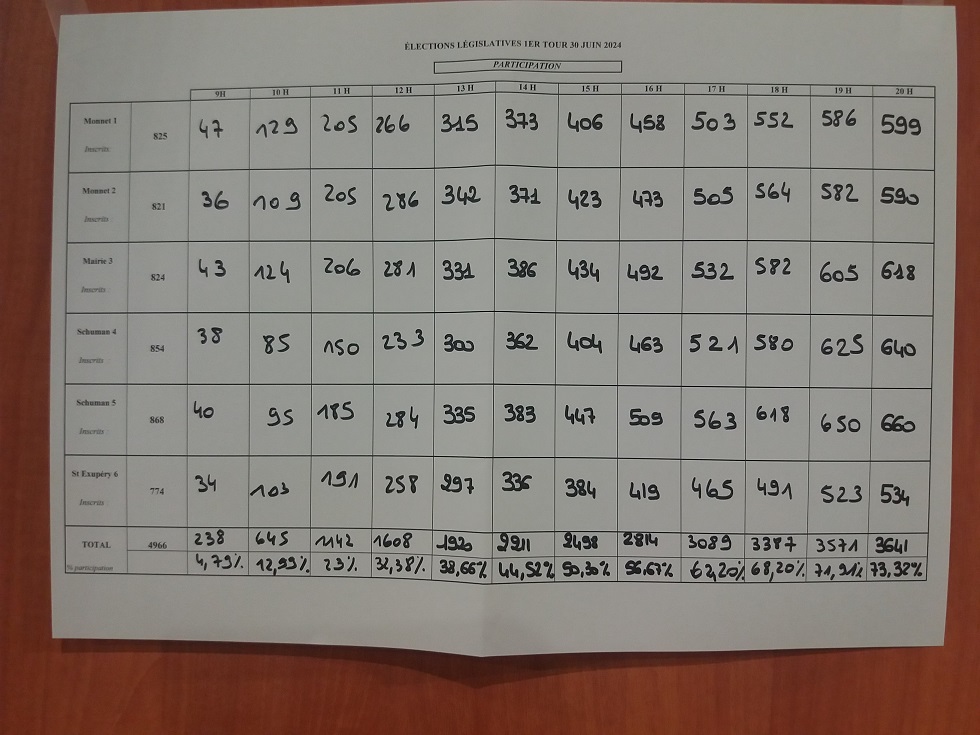 ÉLECTIONS LÉGISLATIVES 1ER TOUR 30 JUIN 2024
PARTICIPATION
9H 10 H 11 H 12 H 13 H 14 H 15 H 16 H 17 H 18 H 19 H 20 H
Monnet 1 825 47 129 205 266 315 373 406 458 503 552 586 599
Inscrits
Monnet 2 821 36 109 205 286 342 371 423 473 505 564 582 590
Inscrits
Mairie 3 824 43 124 206 281 331 386 434 492 532 582 605 618
Inscrits
Schuman 4 854 38 85 150 233 300 362 404 463 521 580 625 640
Inscrits
Schuman 5 868 40 95 185 284 335 383 447 509 563 618 650 660
Inscrits
St Exupéry 6 774 34 103 191 258 297 336 384 419 465 491 523 534
Inscrits
TOTAL 4966 238 645 1142 1608 1920 2211 2498 2814 3089 3387 3571 3641
% participation 4,79% 12,99% 23% 32,38% 38,66% 44,52% 50,30% 56,67% 62,20% 68,20% 71,91% 73,32%